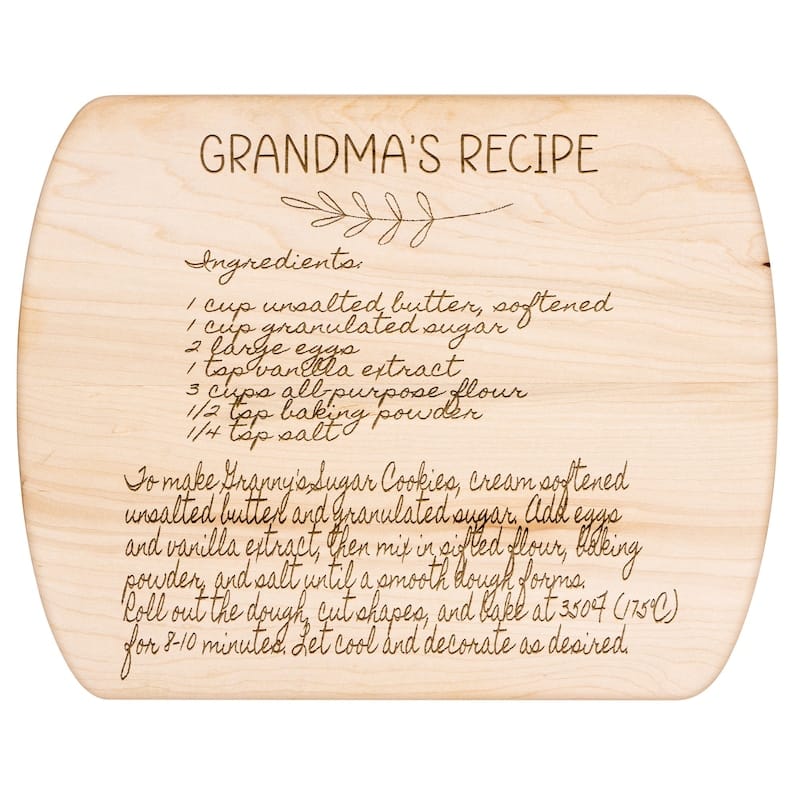 GRANDMA'S RECIPE
Ingredients:
1 cup unsalted butter, softened
1 cup granulated sugar
2 large eggs
1 tsp vanilla extract
3 cups all-purpose flour
1/2 tsp baking powder
1/4 tsp salt
To make Granny's Sugar Cookies, cream softened
unsalted butter and granulated sugar. Add eggs
and vanilla extract, then mix in sifted flour, baking
powder, and salt until a smooth dough forms.
Roll out the dough, cut shapes, and bake at 350°F (175°C)
for 8-10 minutes. Let cool and decorate as desired.